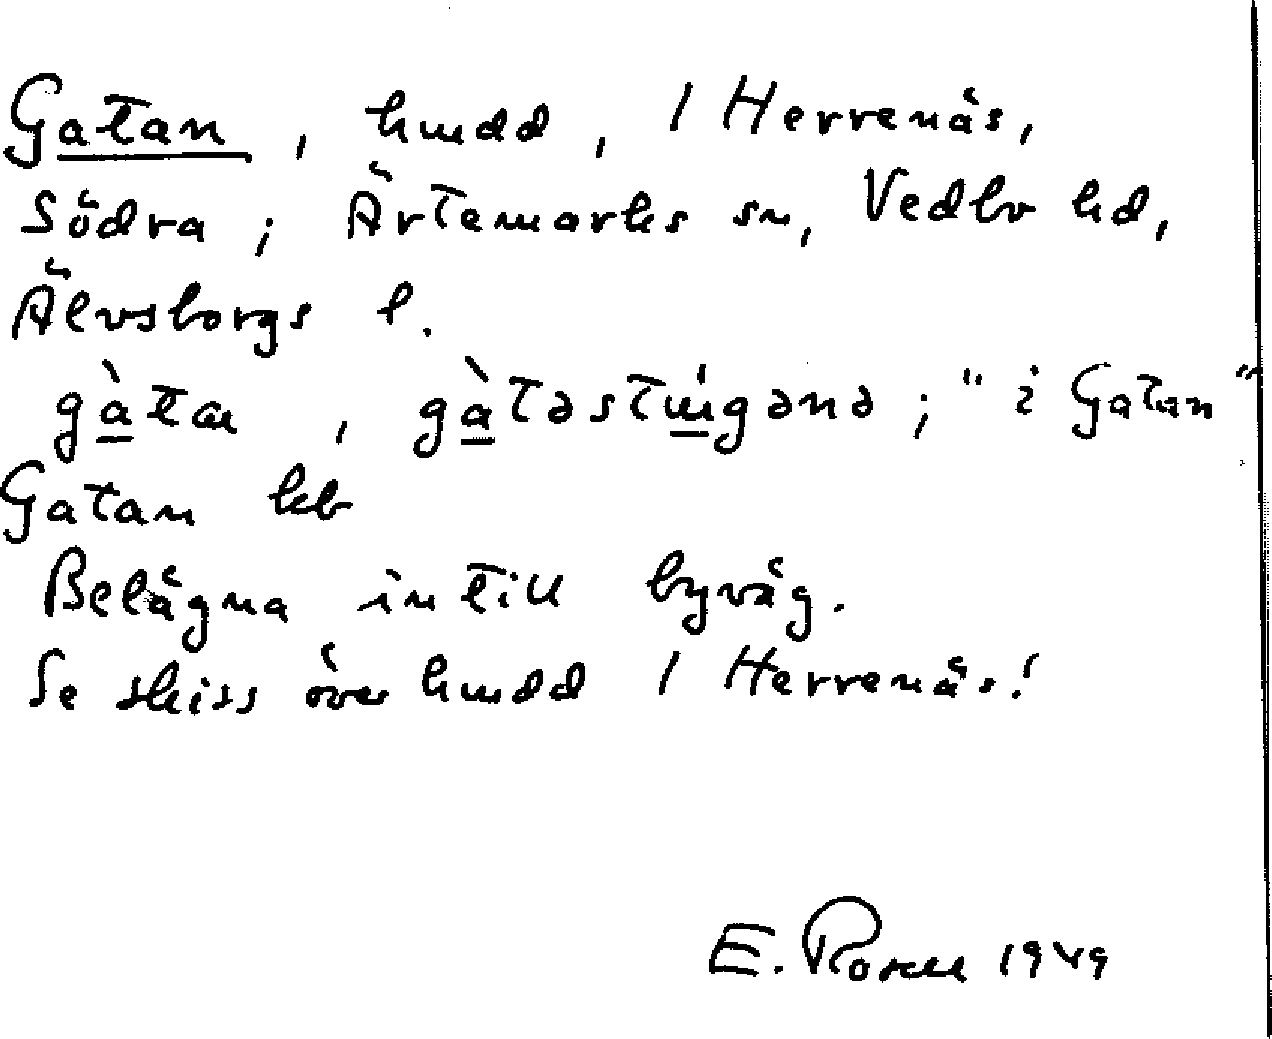 Gatan, hmdd, 1 Herrenäs,
Södra; Ärtemarks sn, Vedbo hd,
Älvsborgs l.
gàtæ, gàtəstúigənə; "i Gatan"
Gatan kb
Belägna intill byväg.
Se skiss över hmdd 1 Herrenäs!
E. Rosell 1949